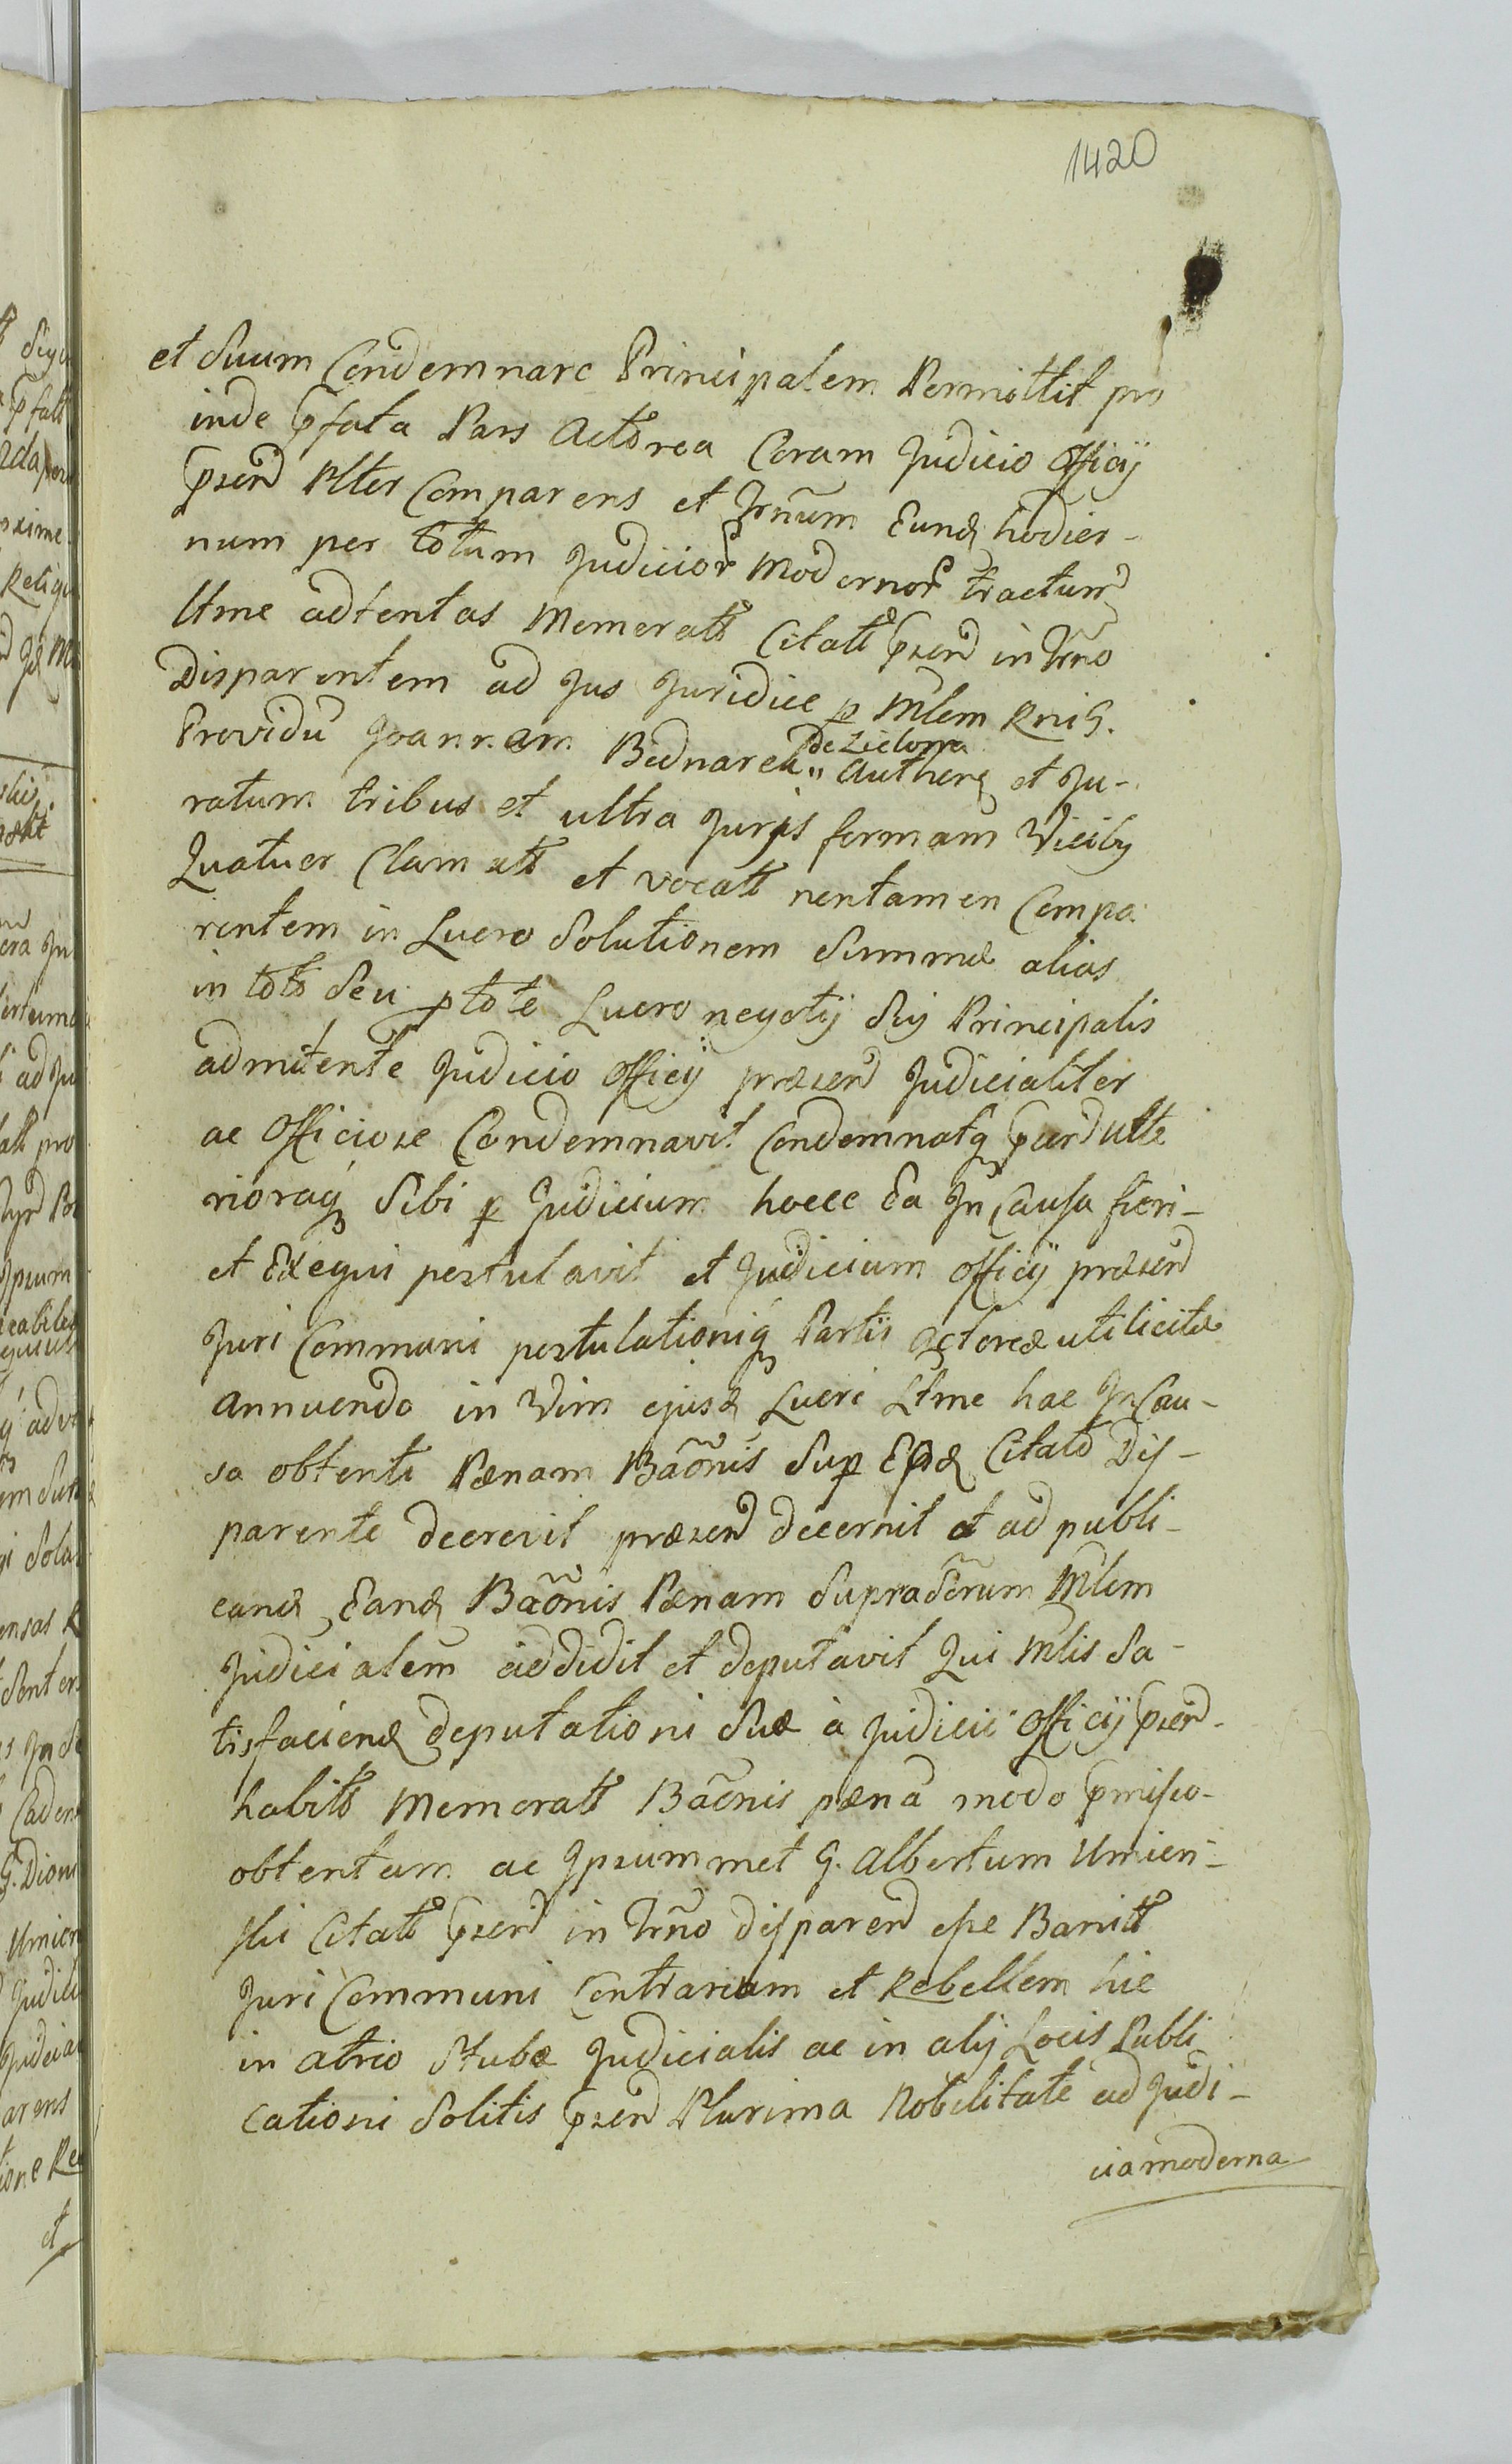 1420
et Suum Condemnare Principalem Permittit pro
inde pfata Pars Actorea Coram Judicio Officij
pzend Plter Comparens et Trnum Eund hodier-
num per totum Judicior Modernor tractum
Ltme adtentas Memoratt Citatt pzend in Trno
Disparentem ad Jus Juridice p Mlem Rnis.
de Zielona
Providu Joannem Bednarek " Authen et Ju-
ratum tribus et ultra Juris formam Vicibq
Quatuor Clamatt et vocatt nontamen Compa
rentem in Lucro Solutionem Summæ alias
in toto Seu ptote Lucro negotij Sui Principalis
admitente Judicio Officij præzend Judicialiter
ac Officioze Condemnavit Condemnatq pzend ulte
rioraq Sibi p Judicium hocce Ea In Causa fieri-
et Exequi postulavit et Judicium Officij præzend
Juri Communi postulationiq Partis Actoreæ uti licitæ
annuendo in Vim ejusd Lucri Ltme hac In Cau-
sa obtenti Pænam Baonis Sup Eod Citato Dis-
parente decrevit præzend decernit et ad publi-
cand Eand Baonis Pænam Suprascrum Mlem
Judicialem addidit et deputavit Qui Mlis Sa-
tisfaciend deputationi Suæ à Judicii Officij pzend-
habitt Memoratt Baonis pæna modo pmisso-
obtentam ac Ipsummet G. Albertum Umien-
ski Citatt pzend in Trno disparend esse Banitt
Juri Communi Contrarium et Rebellem hic
in atrio Stubæ Judicialis ac in alij Locis Publi
cationi Solitis pzend Plurima Nobilitate ad Judi-
cia moderna